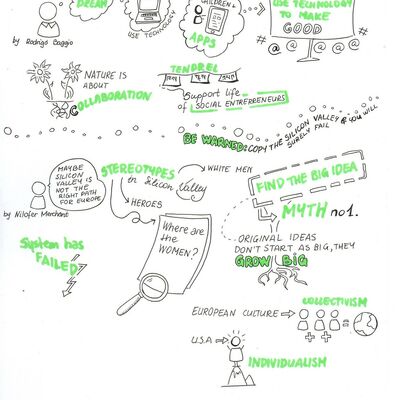 DREAM
USE TECHNOLOGY
CHILDREN +
APPS
USE TECHNOLOGY
TO MAKE
GOOD
# @ @ @ @ @ #
by Rodrigo Baggio
NATURE IS
ABOUT
COLLABORATION
TENDREL
Support life
of SOCIAL ENTREPRENEURS
BE WARNED: COPY THE SILICON VALLEY & YOU WILL
SURELY FAIL
MAYBE
SILICON
VALLEY IS
NOT THE
RIGHT PATH
FOR EUROPE
by Nilofer Merchant
STEREOTYPES
in Silicon Valley
WHITE MEN
HEROES
Where are
the
WOMEN?
FIND THE BIG IDEA
MYTH no1.
ORIGINAL IDEAS
DON'T START AS BIG, THEY
GROW BIG
System has
FAILED
COLLECTIVISM
EUROPEAN CULTURE
+ + =
U.S.A
INDIVIDUALISM